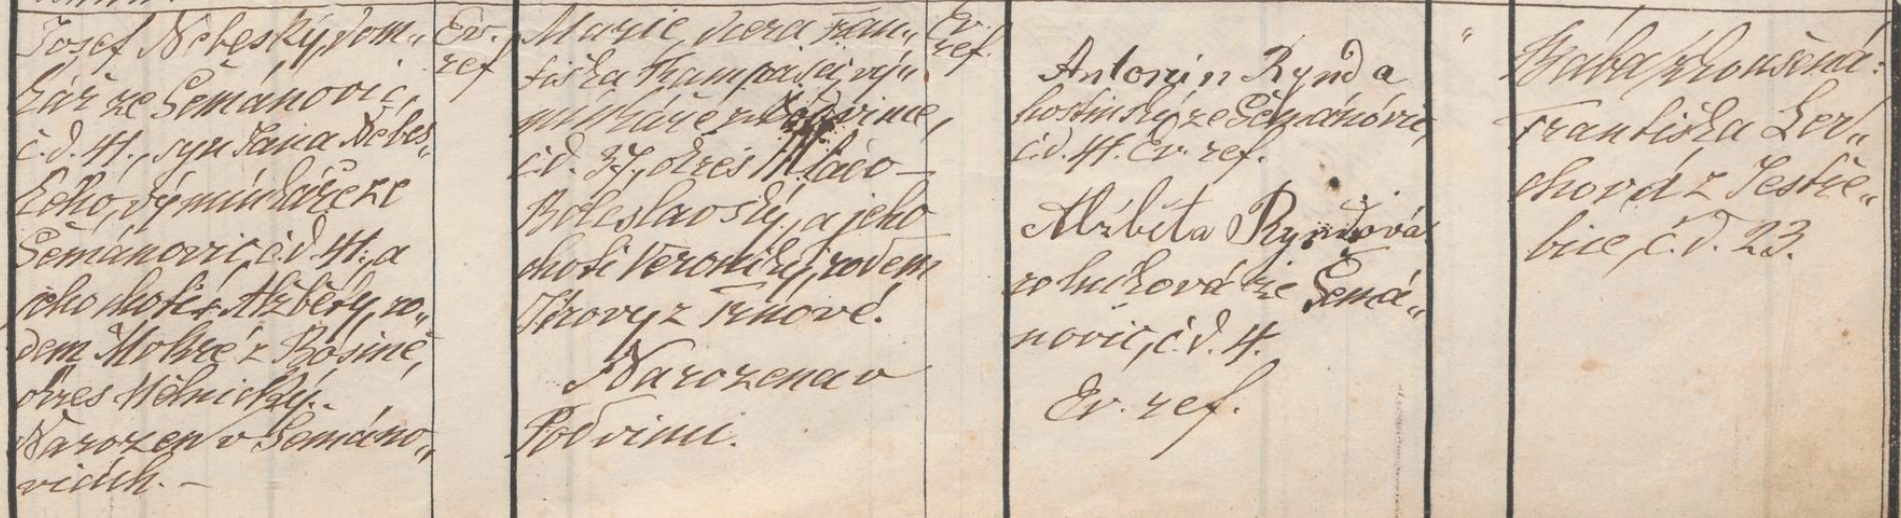 Josef Nebeský, dom„
kář ze Šemánovic,
č.d. 41., syn Jana Nebes„
kého, výminkáře ze
Šemánovic, č.d. 41., a
jeho choti Alžběty, ro„
dem Mokré z Bosině,
okres Mělnický.
Narozen v Šemáno„
vicích. –
Ev.
ref
Marie dcera Fran„
tiška vý„
minkáře z Podvince,
č.d. 37, okres Mlado –
Boleslavský, a jeho
choti Veroniky, rodem
z
Narozena v
Podvinci.
Ev.
ref.
Antonín Rynda
hostinský ze Šemánovic,
č.d. 41. Ev. ref.
Alžběta Ryndová
rolníková ze Šemá„
novic, č.d. 4.
Ev. ref.
"
Bába zkoušená:
Františka Ler„
chová z Jestře„
bice, č.d. 23.